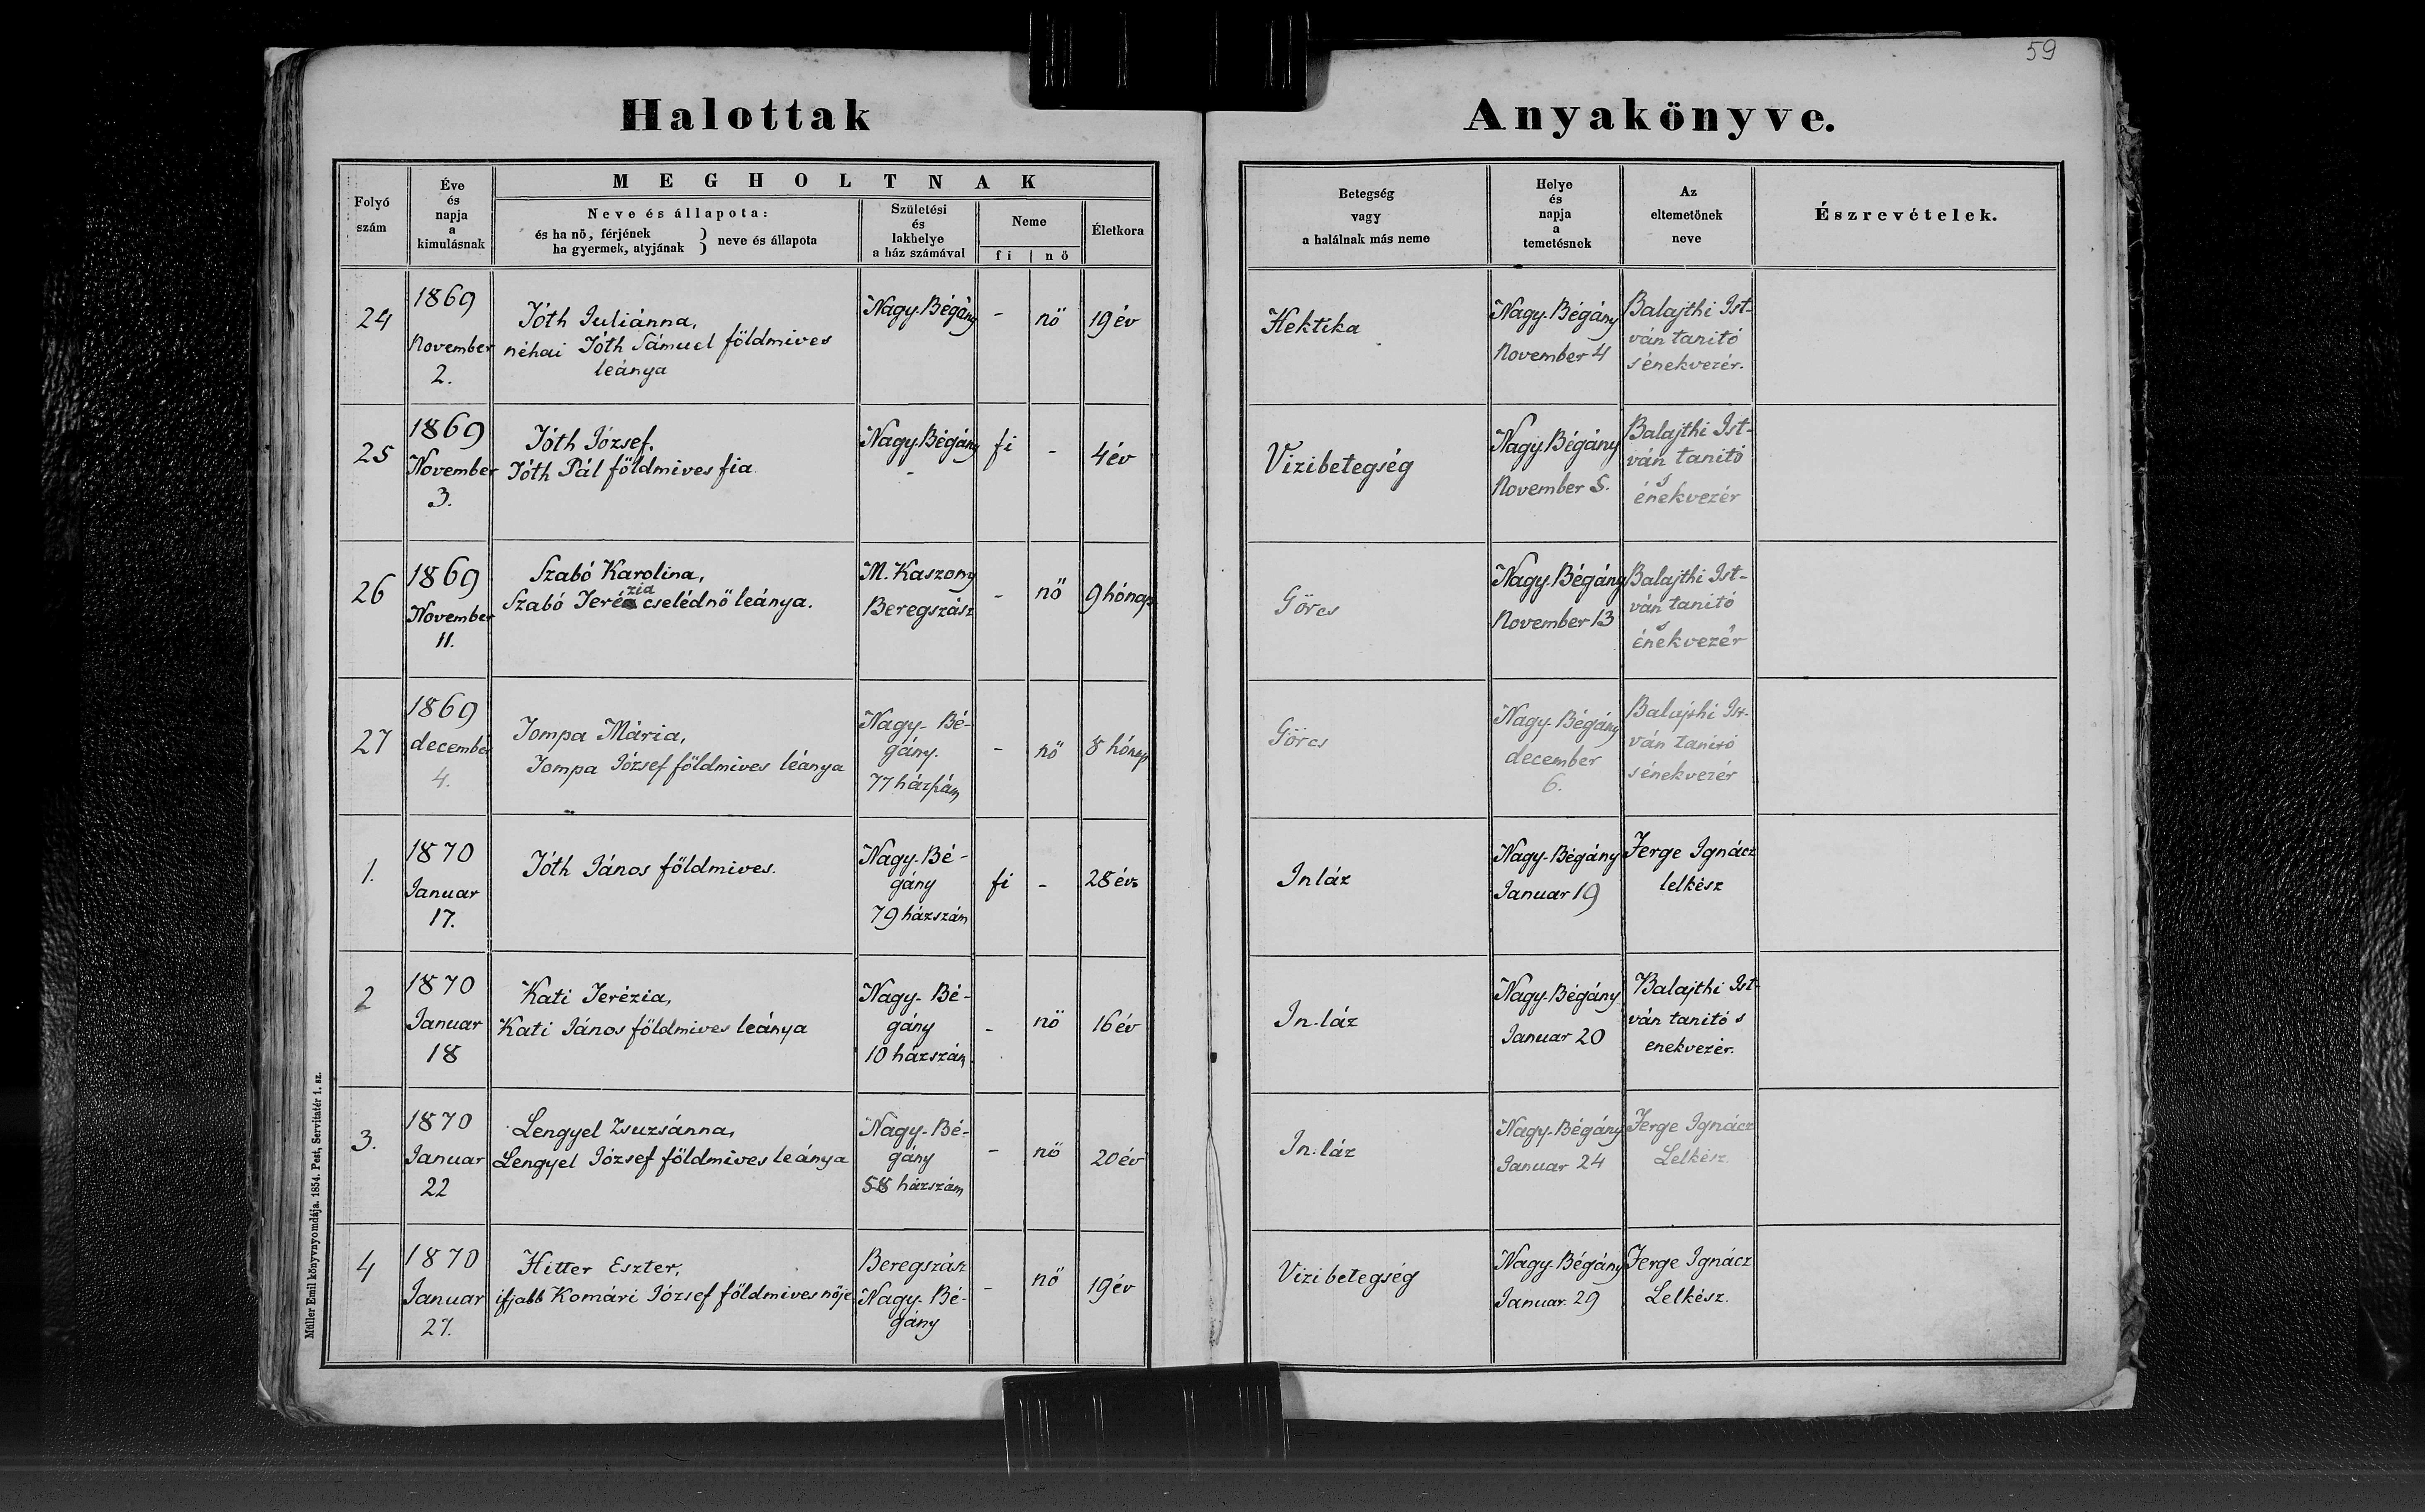 59
Halottak Anyakönyve.
Folyó
szám
Éve
és
napja
a
kimulásnak
MEGHOLTNAK
Neve és állapota:
és ha nö, férjének
ha gyermek, atyjának } neve és állapota
Születési
és
lakhelye
a ház számával
Neme
fi | nö
Életkora
Betegség
vagy
a halálnak más neme
Helye
és
napja
a
temetésnek
Az
eltemetönek
neve
Észrevételek.
24
1869
November
2.
Tóth Juliánna,
néhai Tóth Sámuel földmives
leánya
Nagy-Bégány
-
nö
19 év
Hektika
Nagy-Bégány
November 4
Balajthi Ist-
ván tanitó
s énekvezér.
25
1869
November
3.
Tóth József,
Tóth Pál földmives fia
Nagy Bégány
-
fi
-
4 év
Vizibetegség
Nagy-Bégány
November 5.
Balajthi Ist-
ván tanitó
s
énekvezér
26
1869
November
11.
Szabó Karolina,
Szabó Terézia cselédnö leánya.
M. Kaszony
Beregszász
-
nö
9 hónap
Görcs
Nagy-Bégány
November 13
Balajthi Ist-
ván tanitó
s
énekvezér
27
1869
december
4.
Tompa Mária,
Tompa József földmives leánya
Nagy- Bé-
gány.
77 házszám
-
nö
8 hónap
Görcs
Nagy-Bégány
december
6.
Balajthi Ist-
ván tanitó
s énekvezér
1.
1870
Januar
17.
Tóth János földmives.
Nagy-Bé-
gány
79 házszám
fi
-
28 év.
Inláz
Nagy-Bégány
Januar 19
Ferge Ignácz
lelkész
2
1870
Januar
18
Kati Terézia,
Kati János földmives leánya
Nagy- Bé-
gány
10 házszám
-
nö
16 év
In-láz
Nagy-Bégány
Januar 20
Balajthi Ist-
ván tanitó s
enekvezér.
3.
1870
Januar
22
Lengyel Zsuzsánna,
Lengyel József földmives leánya
Nagy- Bé-
gány
58 házszám
-
nö
20 év
In-láz
Nagy-Bégány
Januar 24
Ferge Ignácz
Lelkész.
4
1870
Januar
27.
Hitter Eszter,
ifjabb Komári József földmives nöje
Beregszász
Nagy- Bé-
gány
-
nö
19 év
Vizibetegség
Nagy-Bégány
Januar. 29
Ferge Ignácz
Lelkész.
Müller Emil könyvnyomdája. 1854. Pest, Servitatér 1. sz.